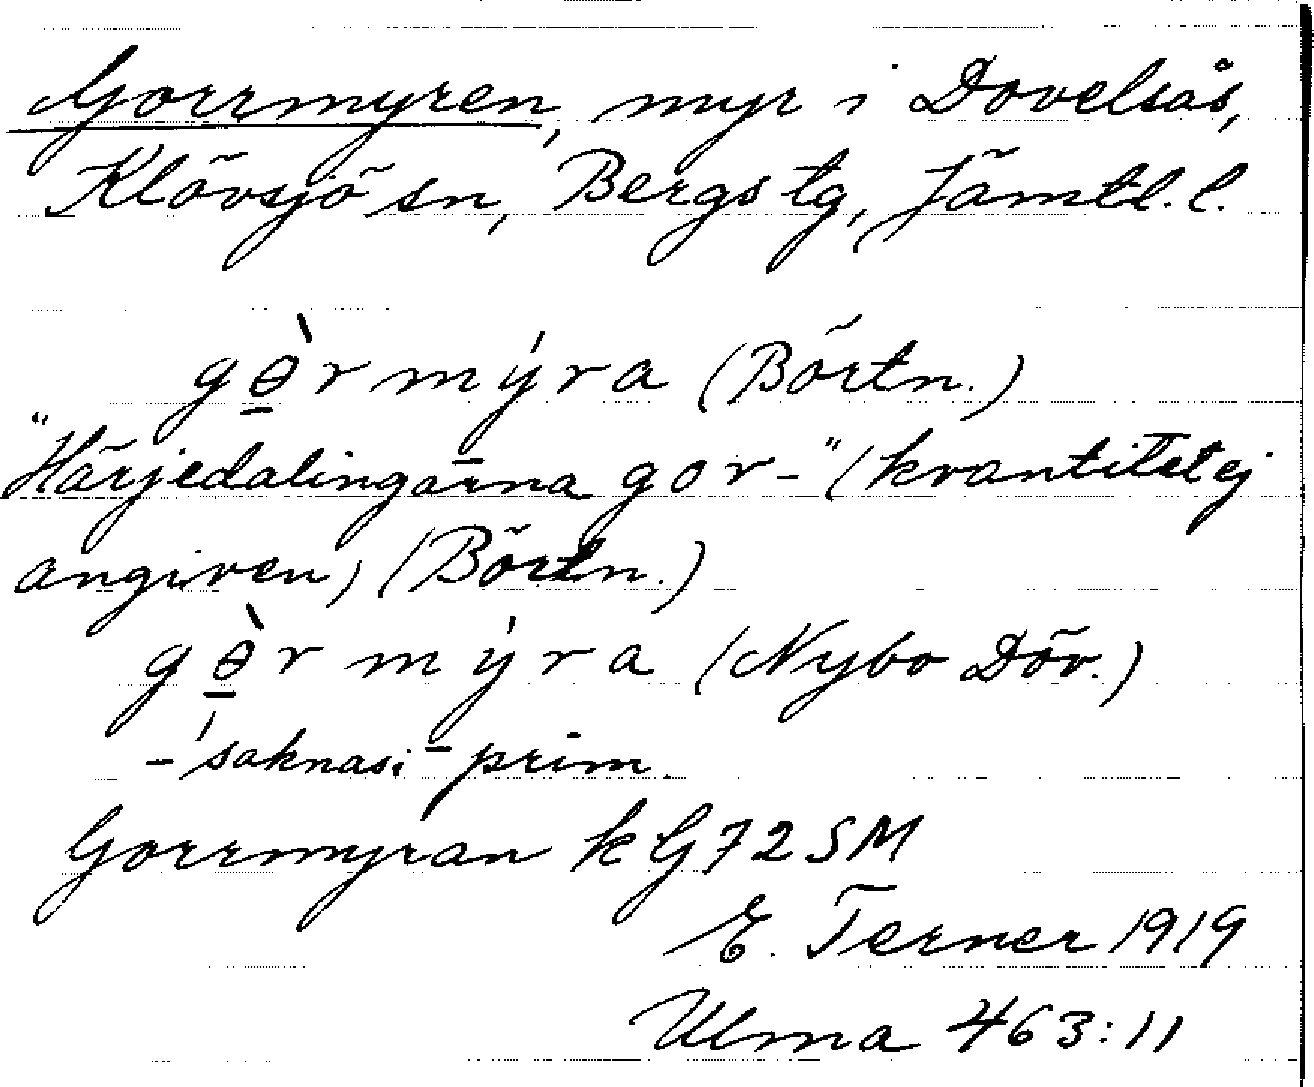 Gorrmyren, myr i Dovelsås,
Klövsjö sn, Bergs tg, Jämtl. l.
gɵ̠̀rmýra (Börtn.)
"Härjedalingarna gor-" (kvantitet ej
angiven) (Börtn.)
gɵ̠̀rmýra (Nybo Döv.)
-́ saknas i prim.
Gorrmyran k G72SM
E. Terner 1919
Ulma 463:11